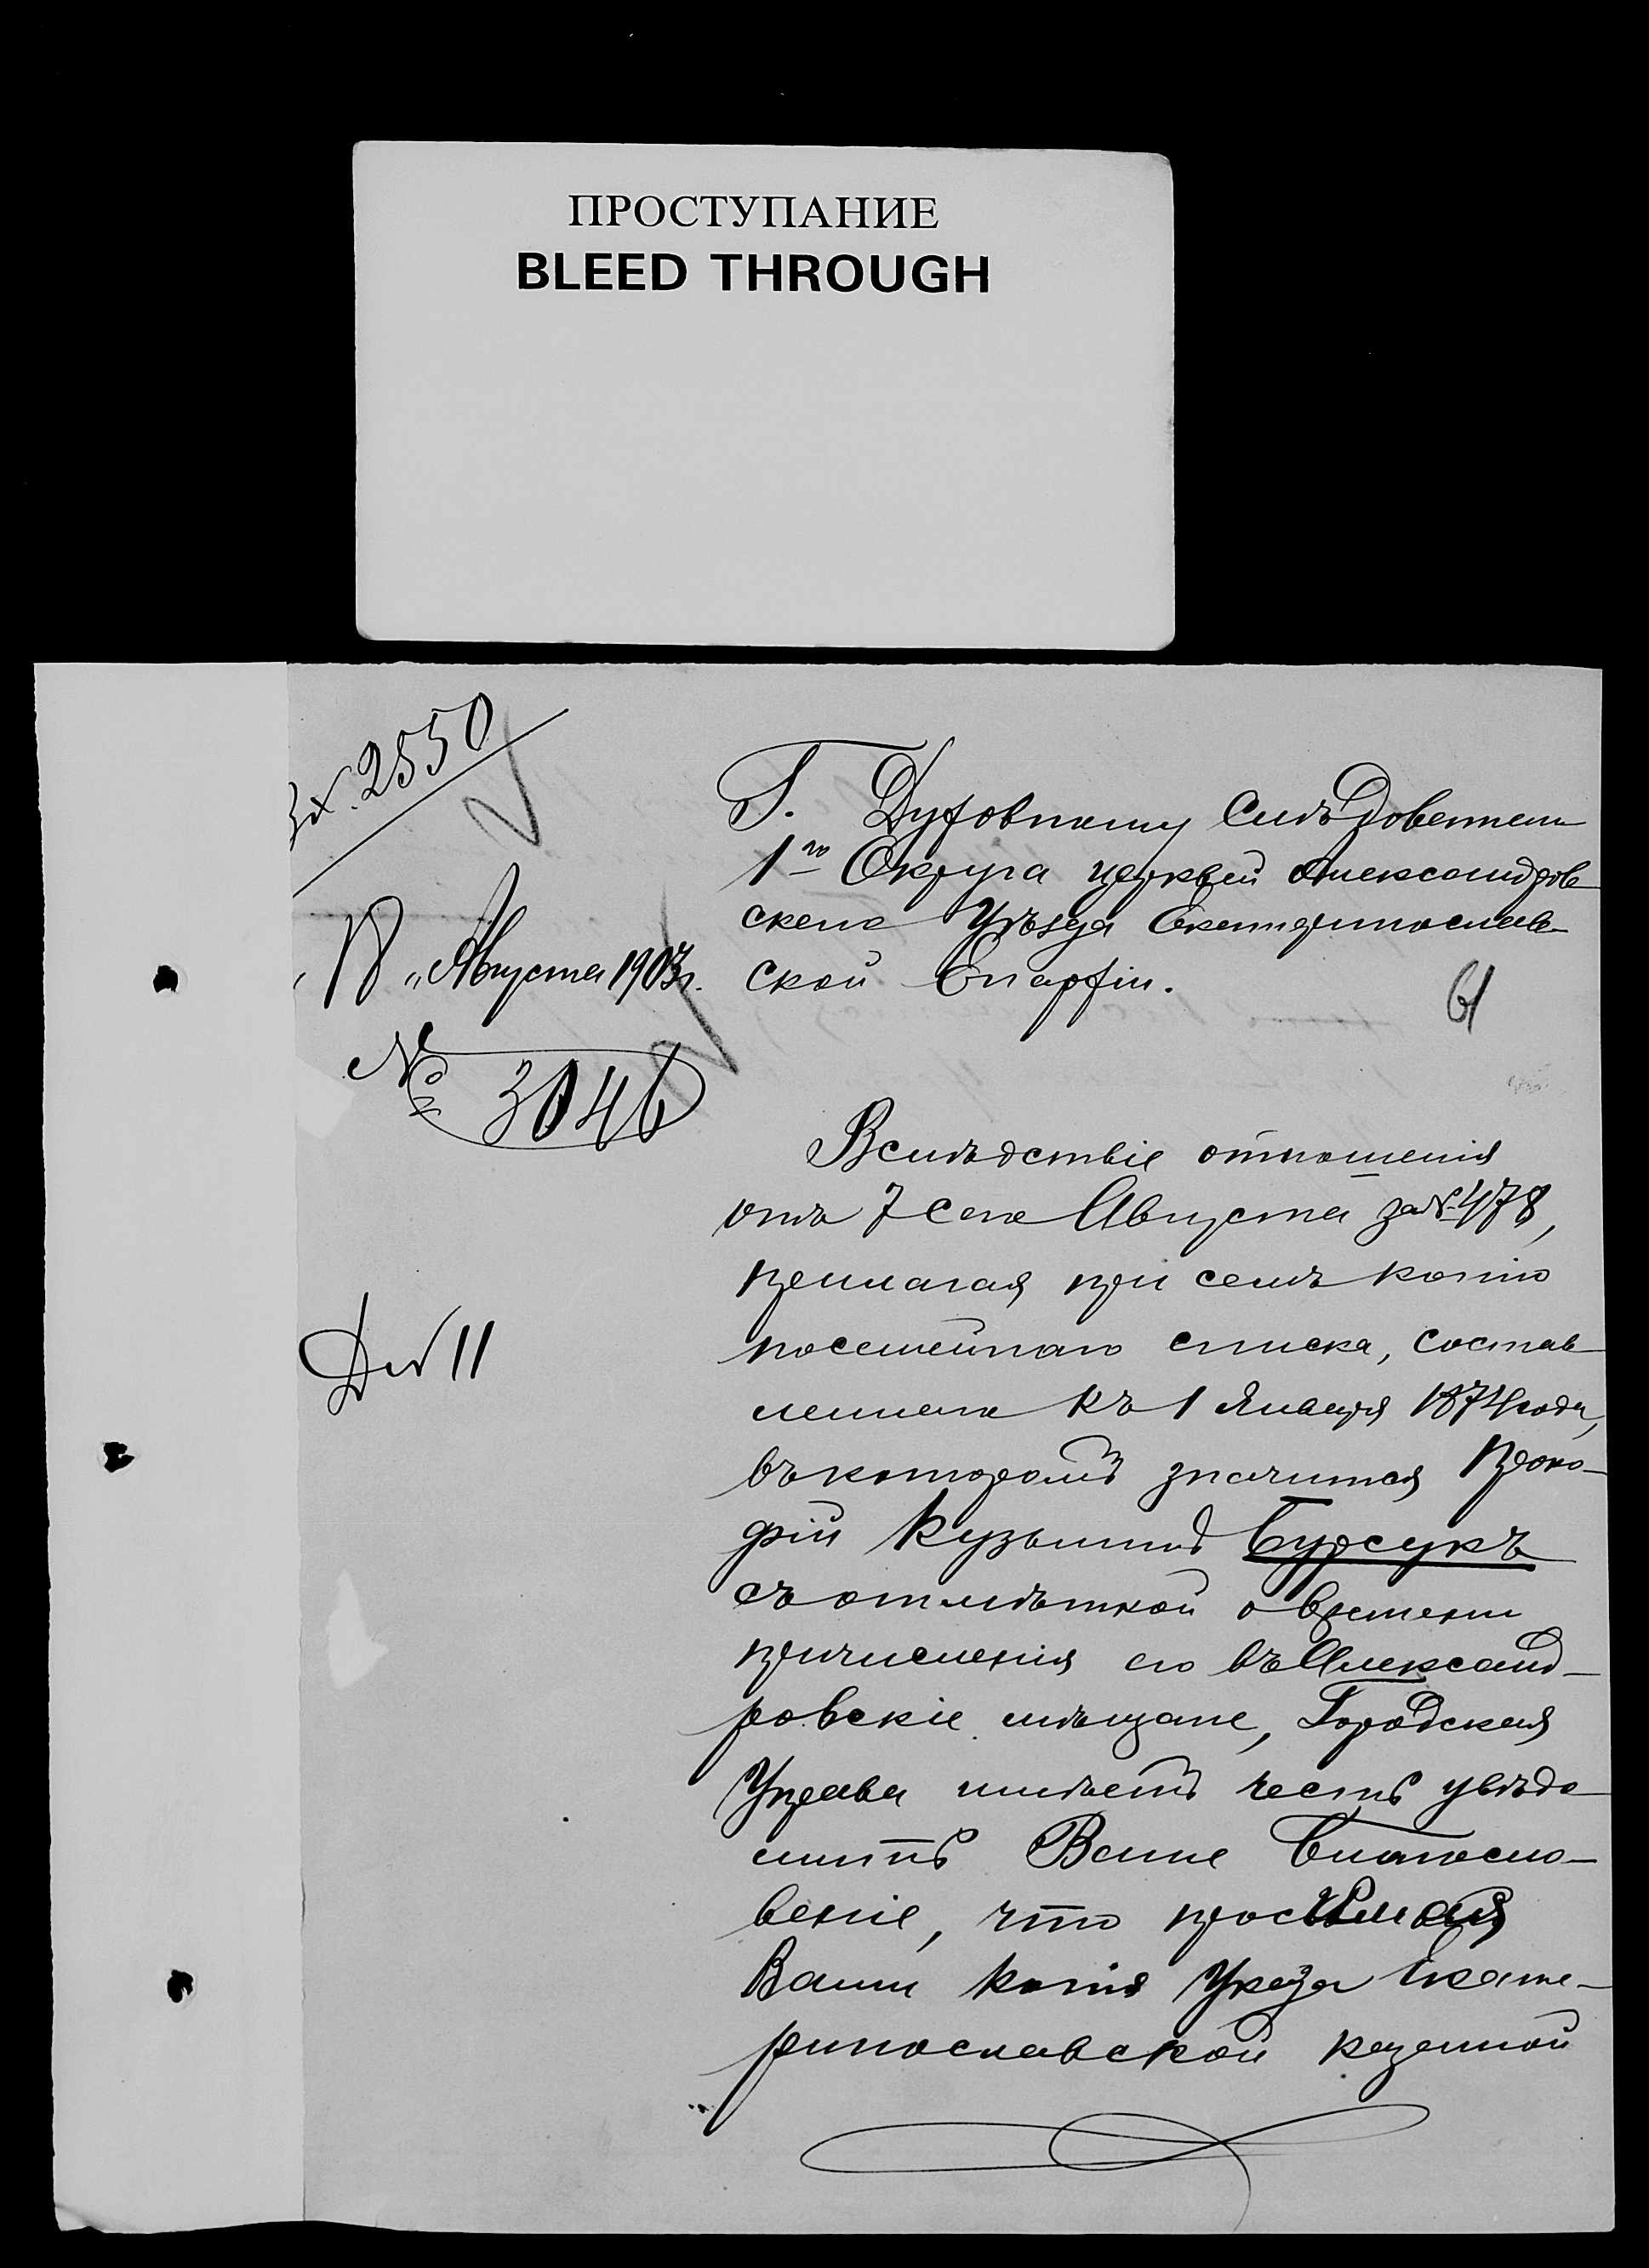 ПРОСТУПАНИЕ
BLEED THROUGH
Вх. 2550
Г. Духовному Слѣдователю
1го Округа церквей Александров
скаго Уѣзда Екатеринослав-
ской Епархіи.
61
" Августа 1903 г.
№ 3046
Вслѣдствіе отношенія
отъ 7 сего Августа за № 478,
прилагая при семъ копію
посемейнаго списка, состав
леннаго къ 1 Января 1874 года,
въ которомъ значится Проко-
фій Кузьминъ Бурсукъ
съ отмѣткой о времени
причисленія его въ Александ-
ровскіе мѣщане, Городская
Управа имѣетъ честь увѣдо
мить Ваше Благосло-
веніе, что просимая
Вами копія Указа Екате-
ринославской казенной
11